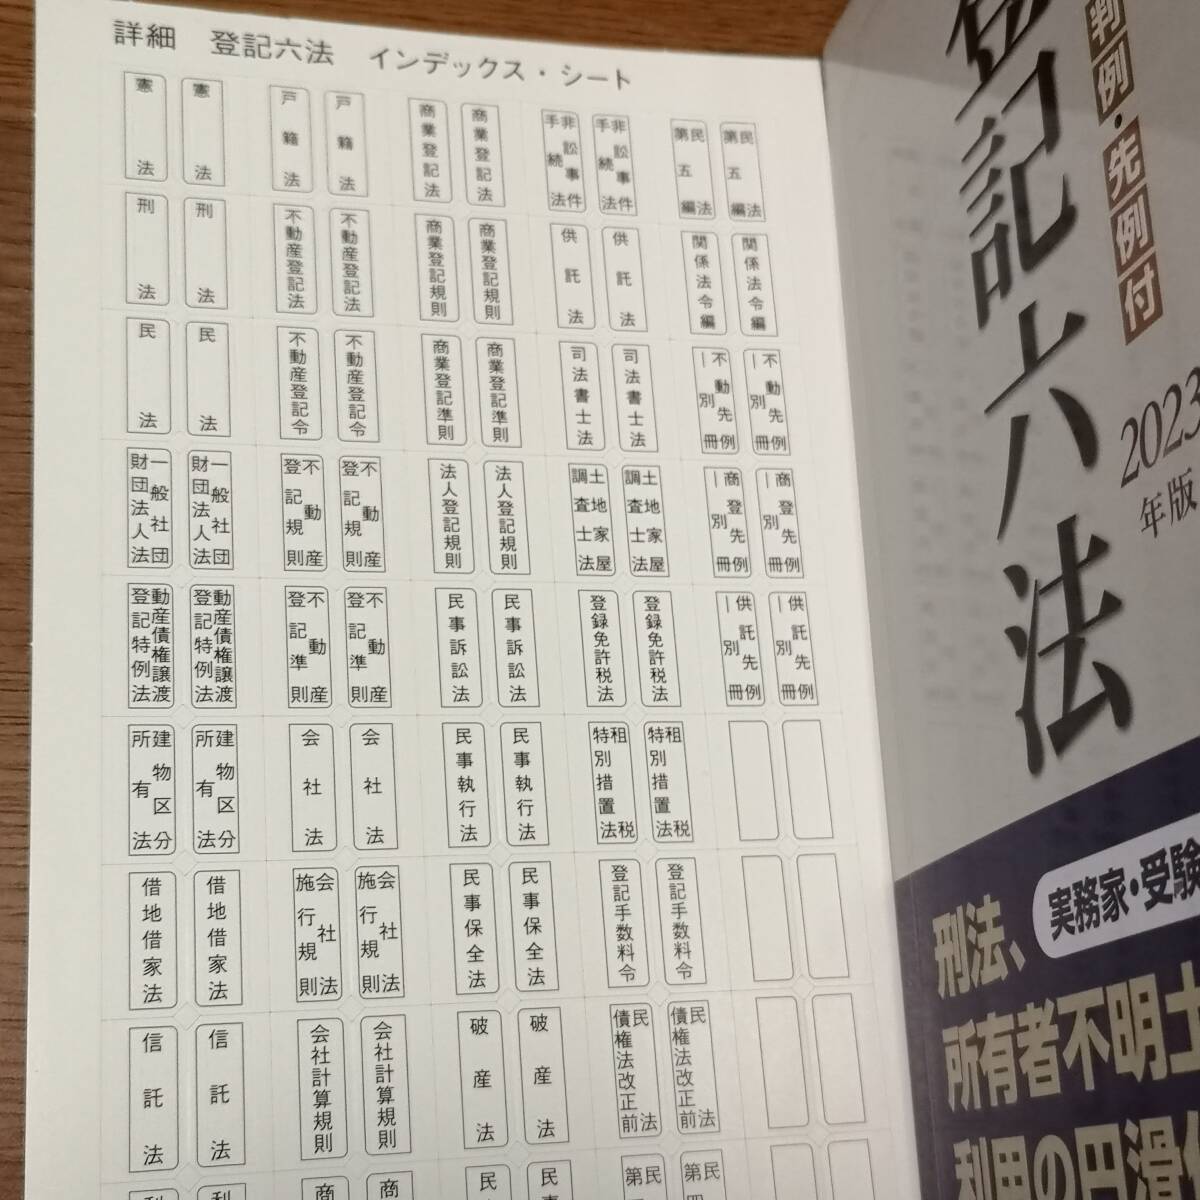 詳細 登記六法 インデックス・シート
憲法 憲法 戸籍法 戸籍法 商業登記法 商業登記法 非訟事件手続法 非訟事件手続法 民法第五編 民法第五編
刑法 刑法 不動産登記法 不動産登記法 商業登記規則 商業登記規則 供託法 供託法 関係法令編 関係法令編
民法 民法 不動産登記令 不動産登記令 商業登記準則 商業登記準則 司法書士法 司法書士法 不動先例ー別冊 不動先例ー別冊
一般社団財団法人法 一般社団財団法人法 不動産登記規則 不動産登記規則 法人登記規則 法人登記規則 土地家屋調査士法 土地家屋調査士法 商登先例ー別冊 商登先例ー別冊
動産債権譲渡登記特例法 動産債権譲渡登記特例法 不動産登記準則 不動産登記準則 民事訴訟法 民事訴訟法 登録免許税法 登録免許税法 供託先例ー別冊 供託先例ー別冊
建物区分所有法 建物区分所有法 会社法 会社法 民事執行法 民事執行法 租税特別措置法 租税特別措置法
借地借家法 借地借家法 会社法施行規則 会社法施行規則 民事保全法 民事保全法 登記手数料令 登記手数料令
信託法 信託法 会社計算規則 会社計算規則 破産法 破産法 民法債権法改正前 民法債権法改正前
利 利 商 商 民 民 民第 民第
判例・先例付
登記六法
2023
年版
実務家・受験
刑法、
所有者不明土
利用の円滑化